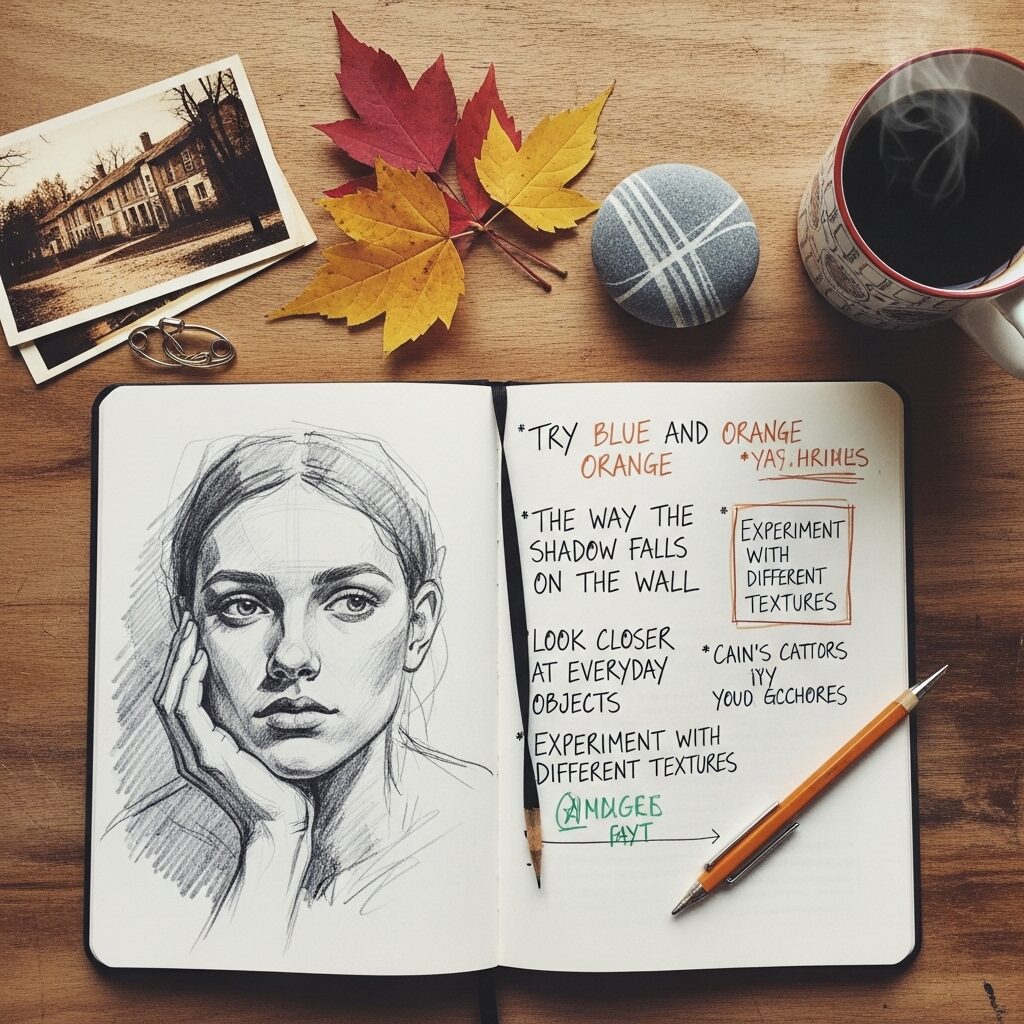 *TRY BLUE AND ORANGE
ORANGE
*THE WAY THE
SHADOW FALLS
ON THE WALL
*EXPERIMENT
WITH
DIFFERENT
TEXTURES
LOOK CLOSER
AT EVERYDAY
OBJECTS
*CAIN'S CATTORS
YOUD GCCHORES
*EXPERIMENT WITH
DIFFERENT TEXTURES
FAYT